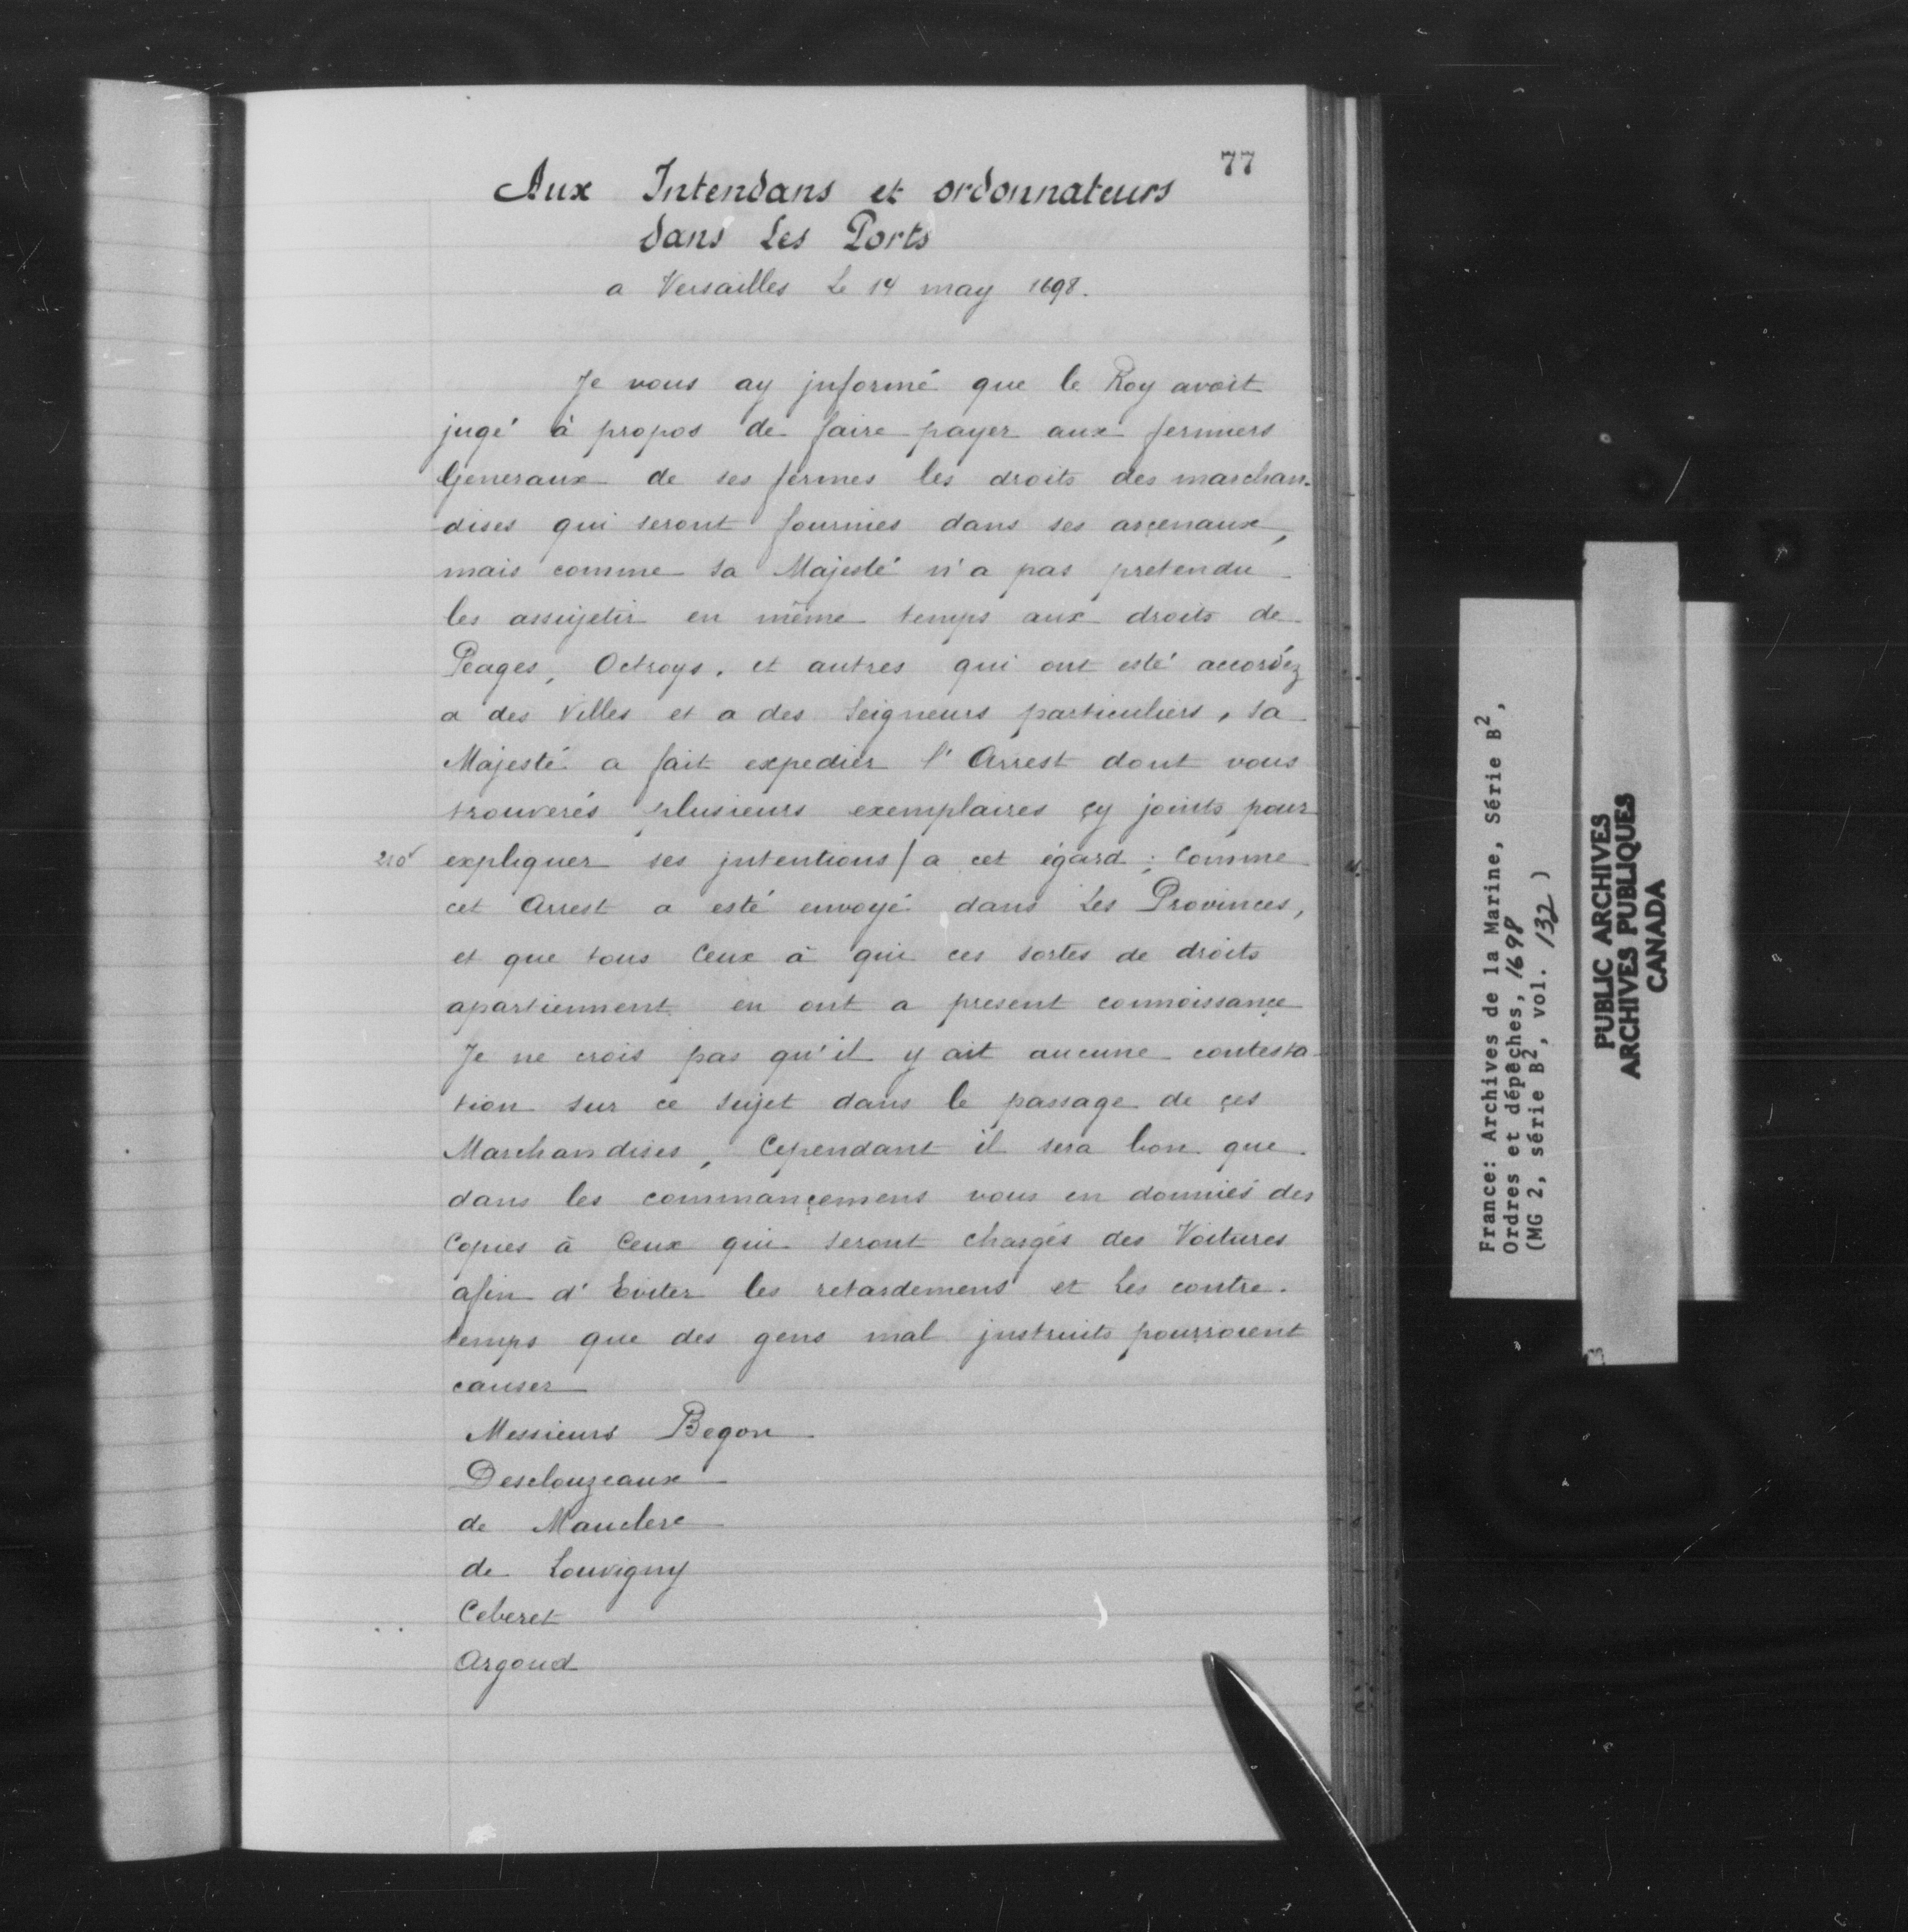 77
Aux Intendans et ordonnateurs
dans Les Ports
a Versailles Le 14 may 1698.
Je vous ay jnformé que le Roy avoit
jugé à propos de faire payer aux fermiers
Generaux de ses fermes les droits des marchan-
dises qui seront fournies dans ses arçenaux,
mais comme sa Majesté n'a pas pretendu
les assujetir en même temps aux droits de
Peages, Octroys, et autres qui ont esté accordéz
a des Villes et a des Seigneurs particuliers, sa
Majesté a fait expedier l'Arrest dont vous
trouverés plusieurs exemplaires çy joints pour
210v expliquer ses jntentions / a cet égard ; Comme
cet Arrest a esté envoyé dans Les Provinces,
et que tous Ceux à qui ces sortes de droits
apartiennent en ont a present connoissançe
Je ne crois pas qu'il y ait aucune contesta-
tion sur ce sujet dans le passage de çes
Marchandises, Cependant il sera bon que
dans les commançemens vous en donniés des
Copies à Ceux qui seront chargés des Voitures
afin d'Eviter les retardemens et Les contre-
temps que des gens mal jnstruits pourroient
causer
Messieurs Begon
Desclouzeaux
de Mauclerc
de Louvigny
Ceberet
Argoud
France: Archives de la Marine, Série B2,
Ordres et dépêches, 1698
(MG 2, série B2, vol. 132)
PUBLIC ARCHIVES
ARCHIVES PUBLIQUES
CANADA